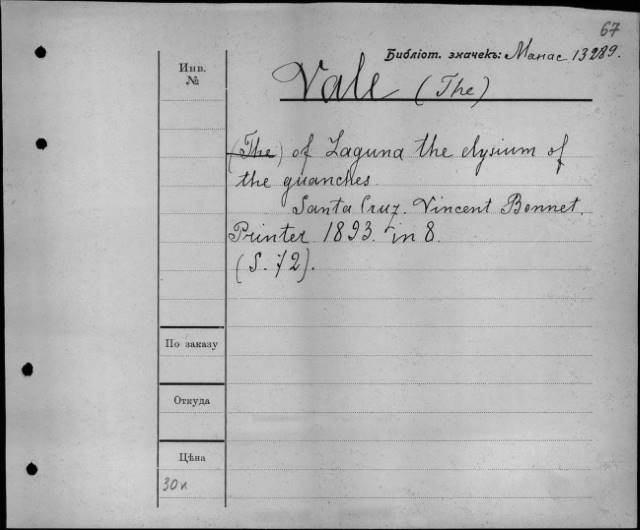 67
Библіот. значекъ: Манас 13289.
Инв.
№
Vale (The)
(The) of Laguna the elysium of
the guanches
Santa Cruz. Vincent Bonnet.
Printer 1893. in 8.
(S. 72).
По заказу
Откуда
Цѣна
30к